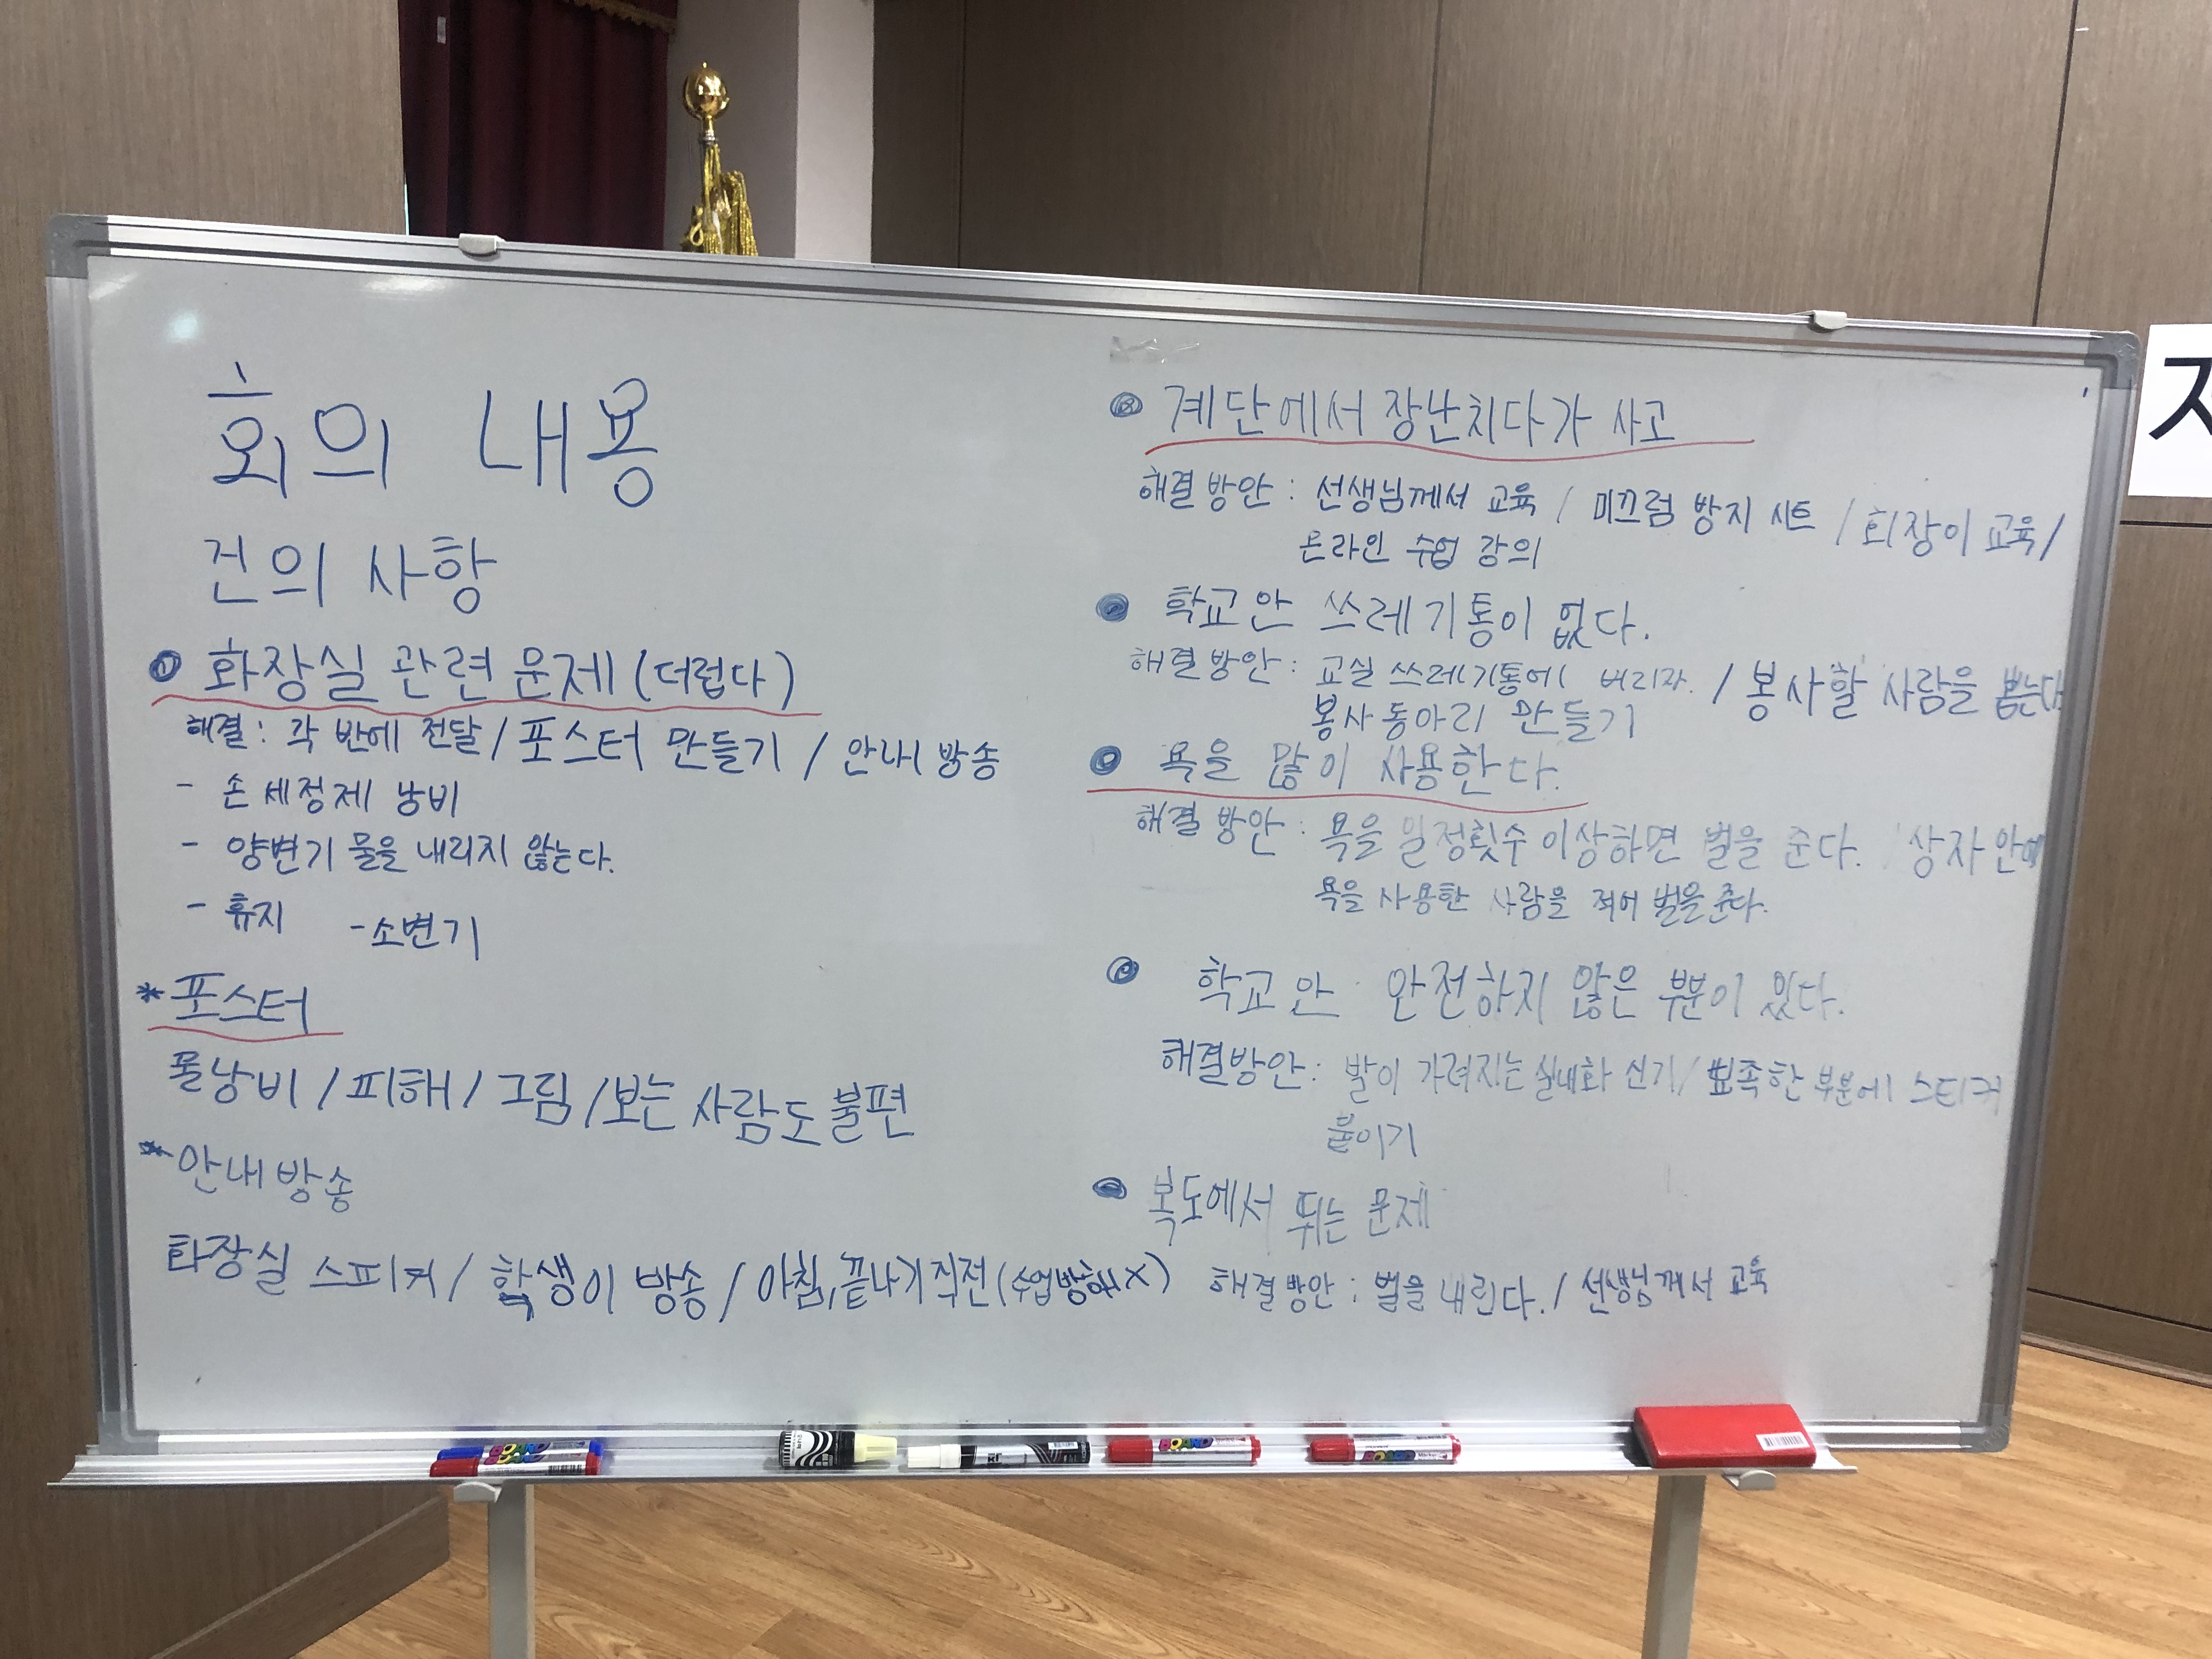 회의 내용
건의 사항
① 화장실 관련 문제(더럽다)
해결: 각 반에 전달/포스터 만들기 / 안내 방송
- 손 세정제 낭비
- 양변기 물을 내리지 않는다.
- 휴지 - 소변기
* 포스터
물낭비/피해/그림/보는 사람도 불편
* 안내방송
화장실 스피커/학생이 방송/아침,끝나기 직전(수업방해X)
계단에서 장난치다가 사고
해결방안: 선생님께서 교육 / 미끄럼 방지 시트 / 회장이 교육/
온라인 수업 강의
학교안 쓰레기통이 없다.
해결방안: 교실 쓰레기통에 버리자. / 봉사할 사람을 뽑는다
봉사동아리 만들기
욕을 많이 사용한다.
해결방안: 욕을 일정횟수 이상하면 벌을 준다. 상자 안에
욕을 사용한 사람을 적어 벌을 준다.
학교안 안전하지 않은 부분이 있다.
해결방안: 발이 가려지는 실내화 신기/뾰족한 부분에 스티커
붙이기
복도에서 뛰는 문제
해결방안: 벌을 내린다./선생님께서 교육
BOARD
BOARD
BOARD
BOARD